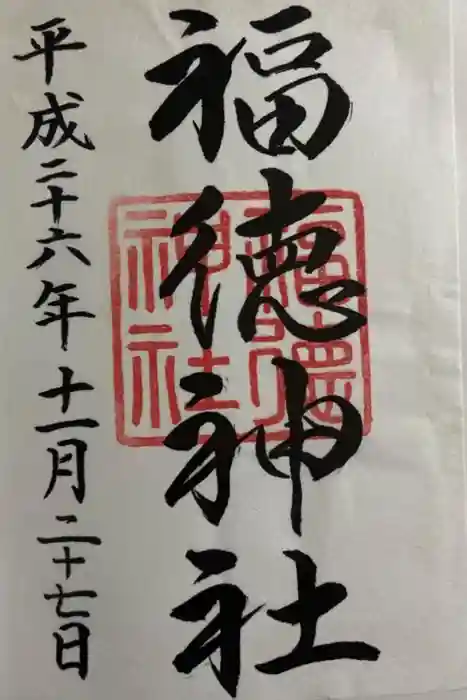 福徳神社
平成二十六年十一月二十七日
福徳
神社